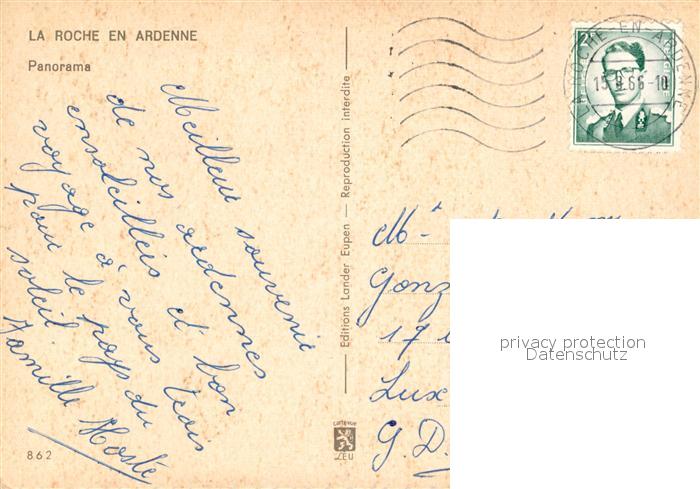 LA ROCHE EN ARDENNE
Panorama
Meilleur souvenir
de nos ardennes
ensoleillées et bon
voyage à vous trois
pour le pays du
soleil.
Famille Hosté
862
Editions Lander Eupen — Reproduction interdite
cartevue
LEU
LA ROCHE EN ARDENNE
15.8.66-10
Gonz
17
Lux
G.D.
privacy protection
Datenschutz